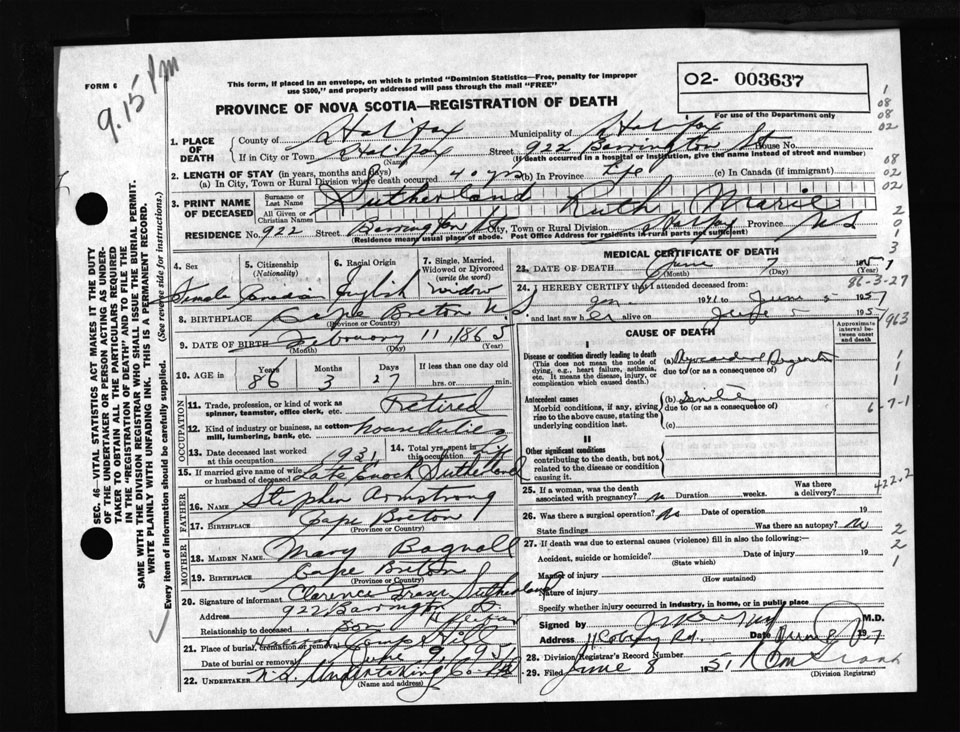 FORM 6
9.15 Pm
This form, if placed in an envelope, on which is printed "Dominion Statistics—Free, penalty for improper
use $300," and properly addressed will pass through the mail "FREE"
O2- 003637
For use of the Department only
PROVINCE OF NOVA SCOTIA—REGISTRATION OF DEATH
1. PLACE OF DEATH County of Halifax Municipality of Halifax
If in City or Town Halifax (Name) Street 922 Barrington St House No.
(If death occurred in a hospital or institution, give the name instead of street and number)
2. LENGTH OF STAY (in years, months and days)
(a) In City, Town or Rural Division where death occurred 40 yrs (b) In Province Life (c) In Canada (if immigrant)
3. PRINT NAME OF DECEASED Surname or Last Name Sutherland
All Given or Christian Names Ruth Marie
RESIDENCE No. 922 Street Barrington St City, Town or Rural Division Halifax Province NS
(Residence means usual place of abode. Post Office Address for residents in rural parts not sufficient)
4. Sex Female
5. Citizenship (Nationality) Canadian
6. Racial Origin English
7. Single, Married, Widowed or Divorced (write the word) Widow
8. BIRTHPLACE Cape Breton N.S
(Province or Country)
9. DATE OF BIRTH February 11, 1865
(Month) (Day)
10. AGE in Years 86 Months 3 Days 27 If less than one day old hrs. or min.
OCCUPATION
11. Trade, profession, or kind of work as spinner, teamster, office clerk, etc. Retired
12. Kind of industry or business, as cotton-mill, lumbering, bank, etc. Houseduties
13. Date deceased last worked at this occupation 1931
14. Total yrs. spent in this occupation Life
15. If married give name of wife or husband of deceased Late Enoch Sutherland
FATHER
16. NAME Stephen Armstrong
17. BIRTHPLACE Cape Breton
(Province or Country)
MOTHER
18. MAIDEN NAME Mary Bagnall
19. BIRTHPLACE Cape Breton
(Province or Country)
20. Signature of informant Clarence Fraser Sutherland
Address 922 Barrington St. Halifax
Relationship to deceased Son
21. Place of burial, cremation or removal Camp Hill
Date of burial or removal June 9 1951
22. UNDERTAKER N.S. Undertaking Co Ltd
(Name and address)
MEDICAL CERTIFICATE OF DEATH
23. DATE OF DEATH June 7 1951
(Month) (Day) (Year)
86-3-27
24. I HEREBY CERTIFY that I attended deceased from:
1941 to June 1951
and last saw her alive on June 1951
963
CAUSE OF DEATH
Approximate interval between onset and death
I
Disease or condition directly leading to death
(This does not mean the mode of dying, e.g., heart failure, asthenia, etc. It means the disease, injury, or complication which caused death.)
(a) Myocardial
due to (or as a consequence of)
Antecedent causes
Morbid conditions, if any, giving rise to the above cause, stating the underlying condition last.
(b) Senile
due to (or as a consequence of)
(c)
6-7-1
II
Other significant conditions contributing to the death, but not related to the disease or condition causing it.
422.2
25. If a woman, was the death associated with pregnancy? Duration weeks. Was there a delivery?
26. Was there a surgical operation? No Date of operation 19
State findings Was there an autopsy? No
27. If death was due to external causes (violence) fill in also the following:
Accident, suicide or homicide? Date of injury 19
(State which)
Manner of injury
(How sustained)
Nature of injury
Specify whether injury occurred in industry, in home, or in public place
Signed by M.D.
Address 11 Coburg Rd. Date June 8
28. Division Registrar's Record Number
29. Filed June 8 1951
(Division Registrar)
SEC. 46—VITAL STATISTICS ACT MAKES IT THE DUTY
OF THE UNDERTAKER OR PERSON ACTING AS UNDERTAKER
TO OBTAIN ALL THE PARTICULARS REQUIRED
IN THE "REGISTRATION OF DEATH" AND TO FILE THE
SAME WITH THE DIVISION REGISTRAR WHO SHALL ISSUE THE BURIAL PERMIT.
WRITE PLAINLY WITH UNFADING INK. THIS IS A PERMANENT RECORD.
Every item of information should be carefully supplied. (See reverse side for instructions.)
1
08
08
02
08
02
02
2
0
3
1
1
1
1
2
2
1